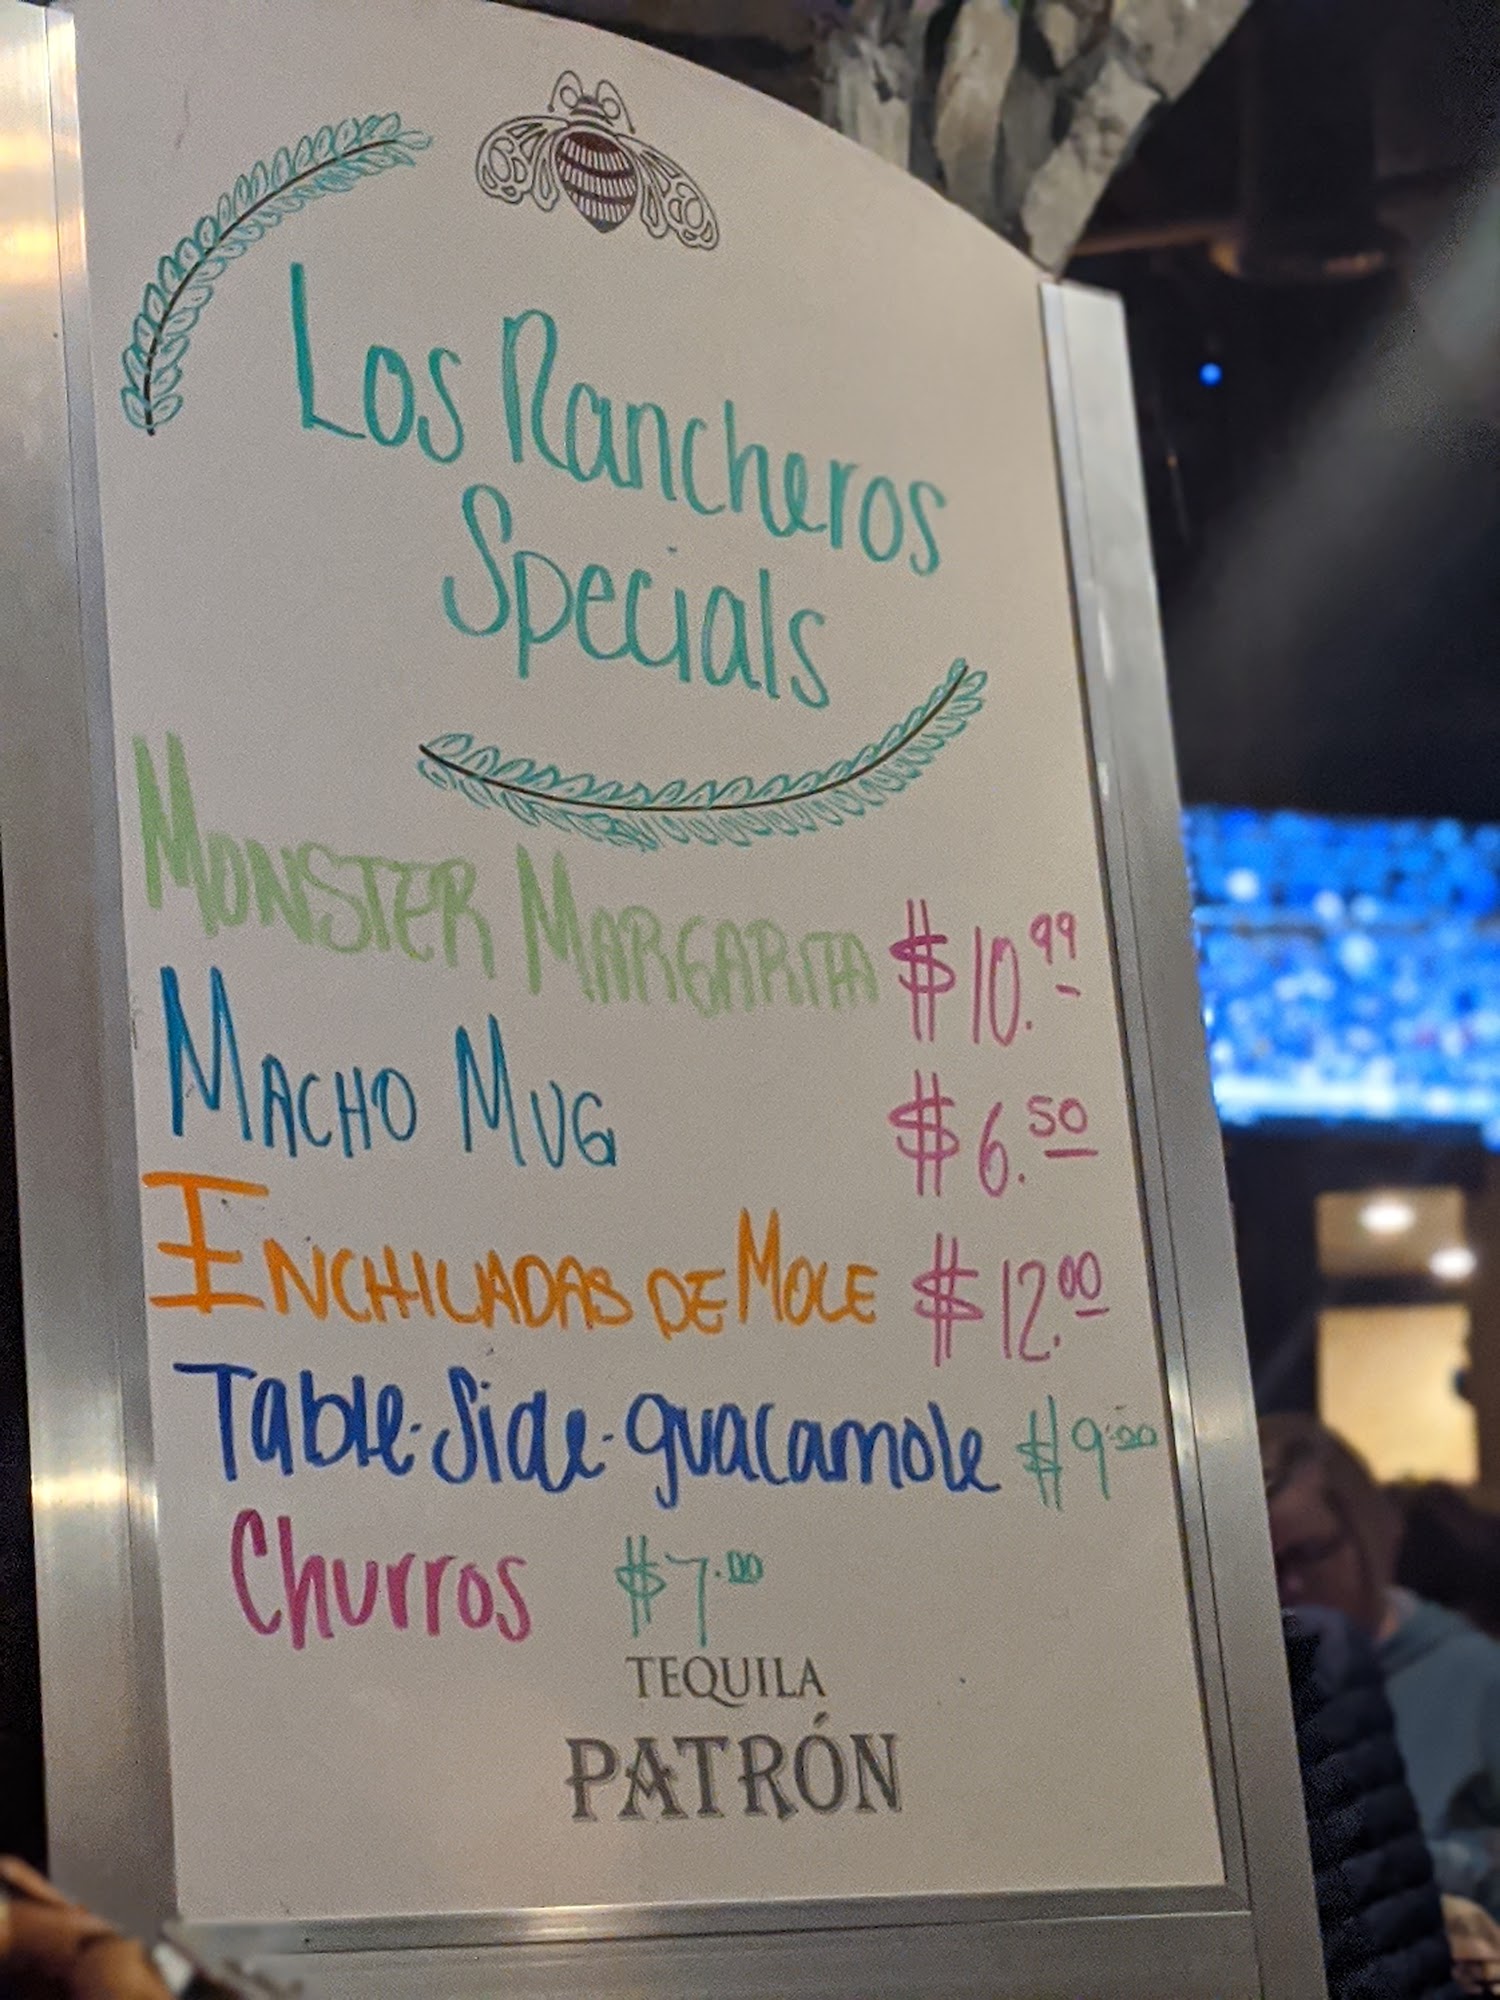 Los Rancheros
Specials
MONSTER MARGARITA $10.99
MACHO MUG $6.50
ENCHILADAS DE MOLE $12.00
Table-Side-guacamole $9.00
Churros $7.00
TEQUILA
PATRÓN